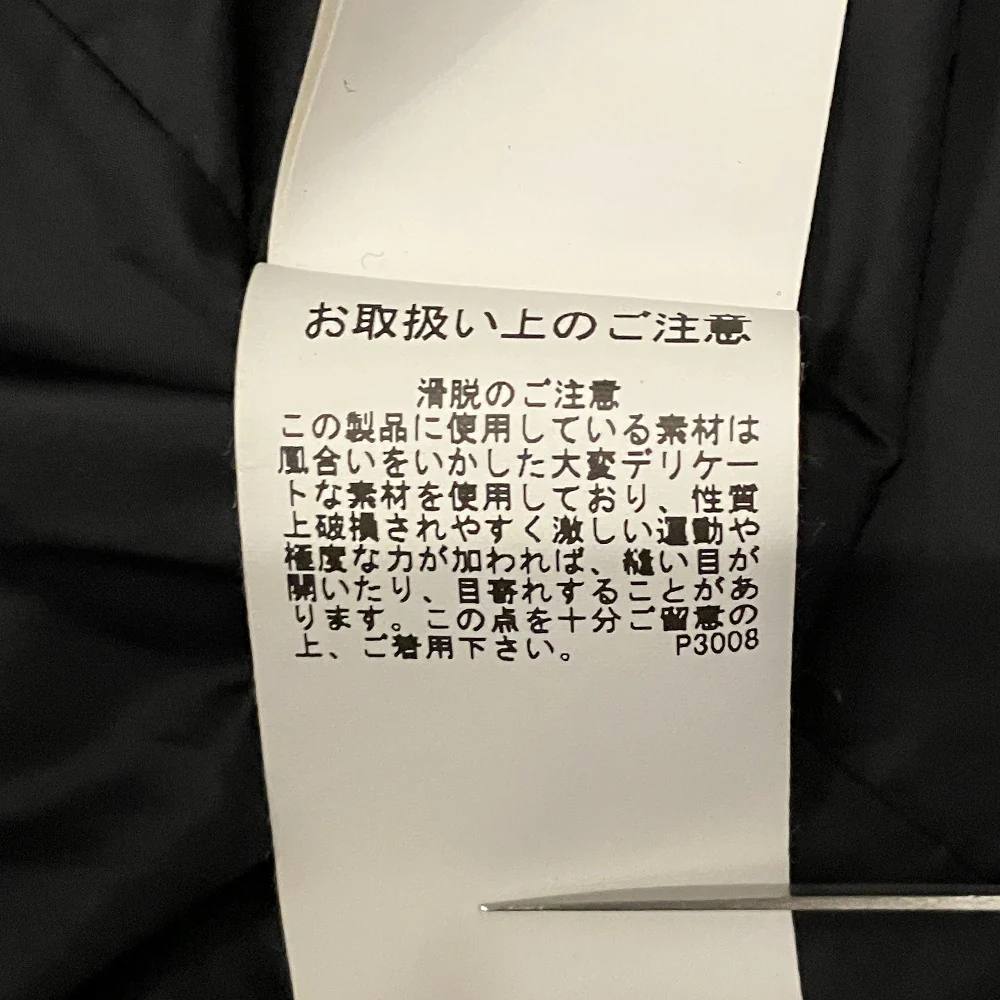 お取扱い上のご注意
滑脱のご注意
この製品に使用している素材は
風合いをいかした大変デリケー
トな素材を使用しており、性質
上破損されやすく激しい運動や
極度な力が加われば、縫い目が
開いたり、目寄れすることがあ
ります。この点を十分ご留意の
上、ご着用下さい。 P3008